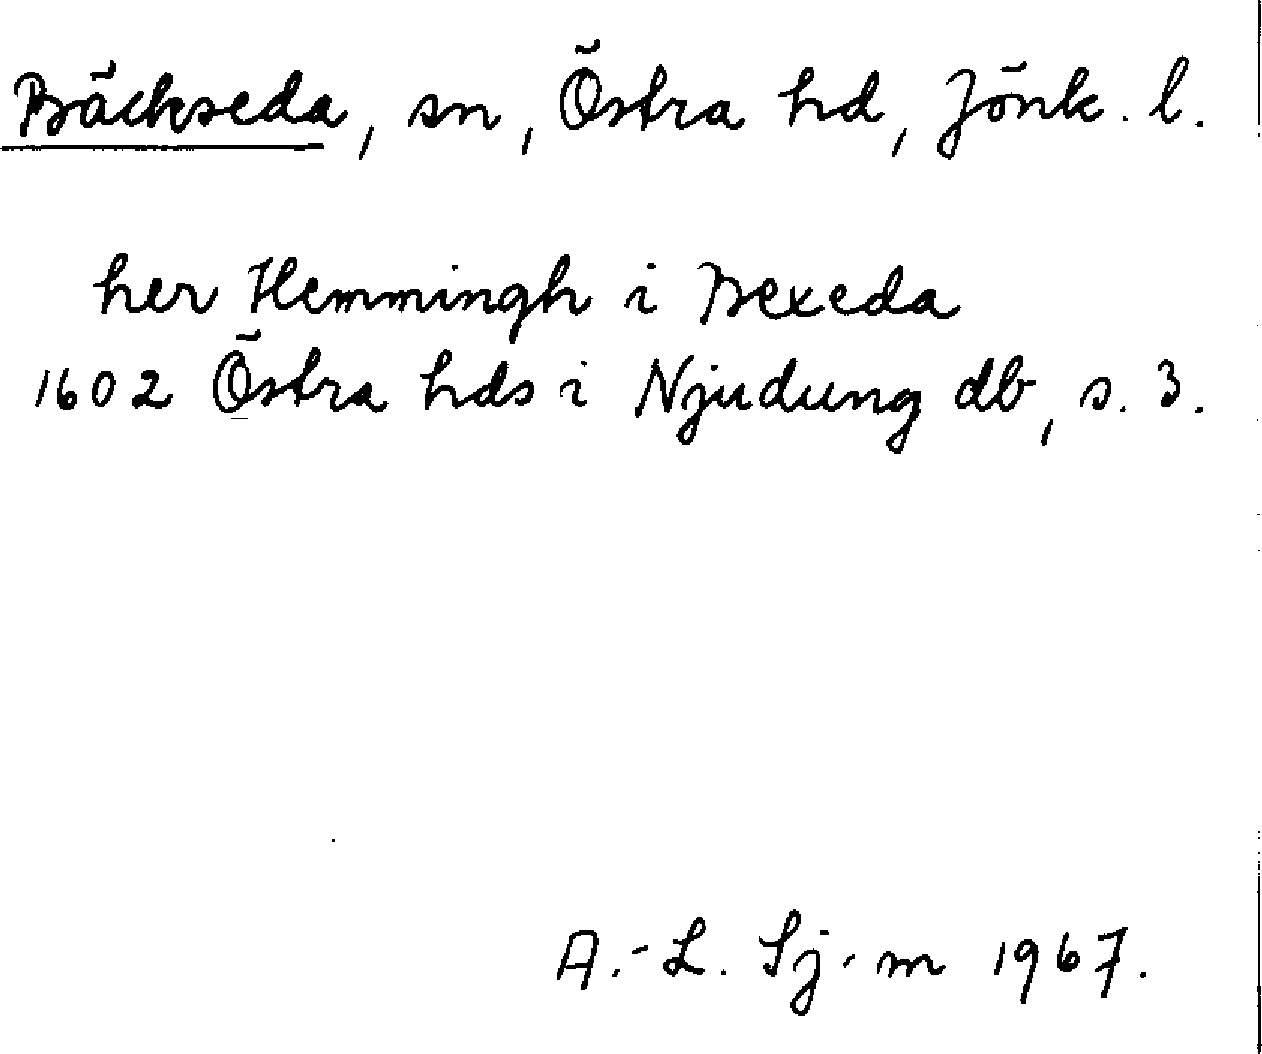 Bäckseda, sn, Östra hd, Jönk. l.
her Hemmingh i Bexeda
1602 Östra hds i Njudung db, s. 3.
A.-L. Sj-m 1967.